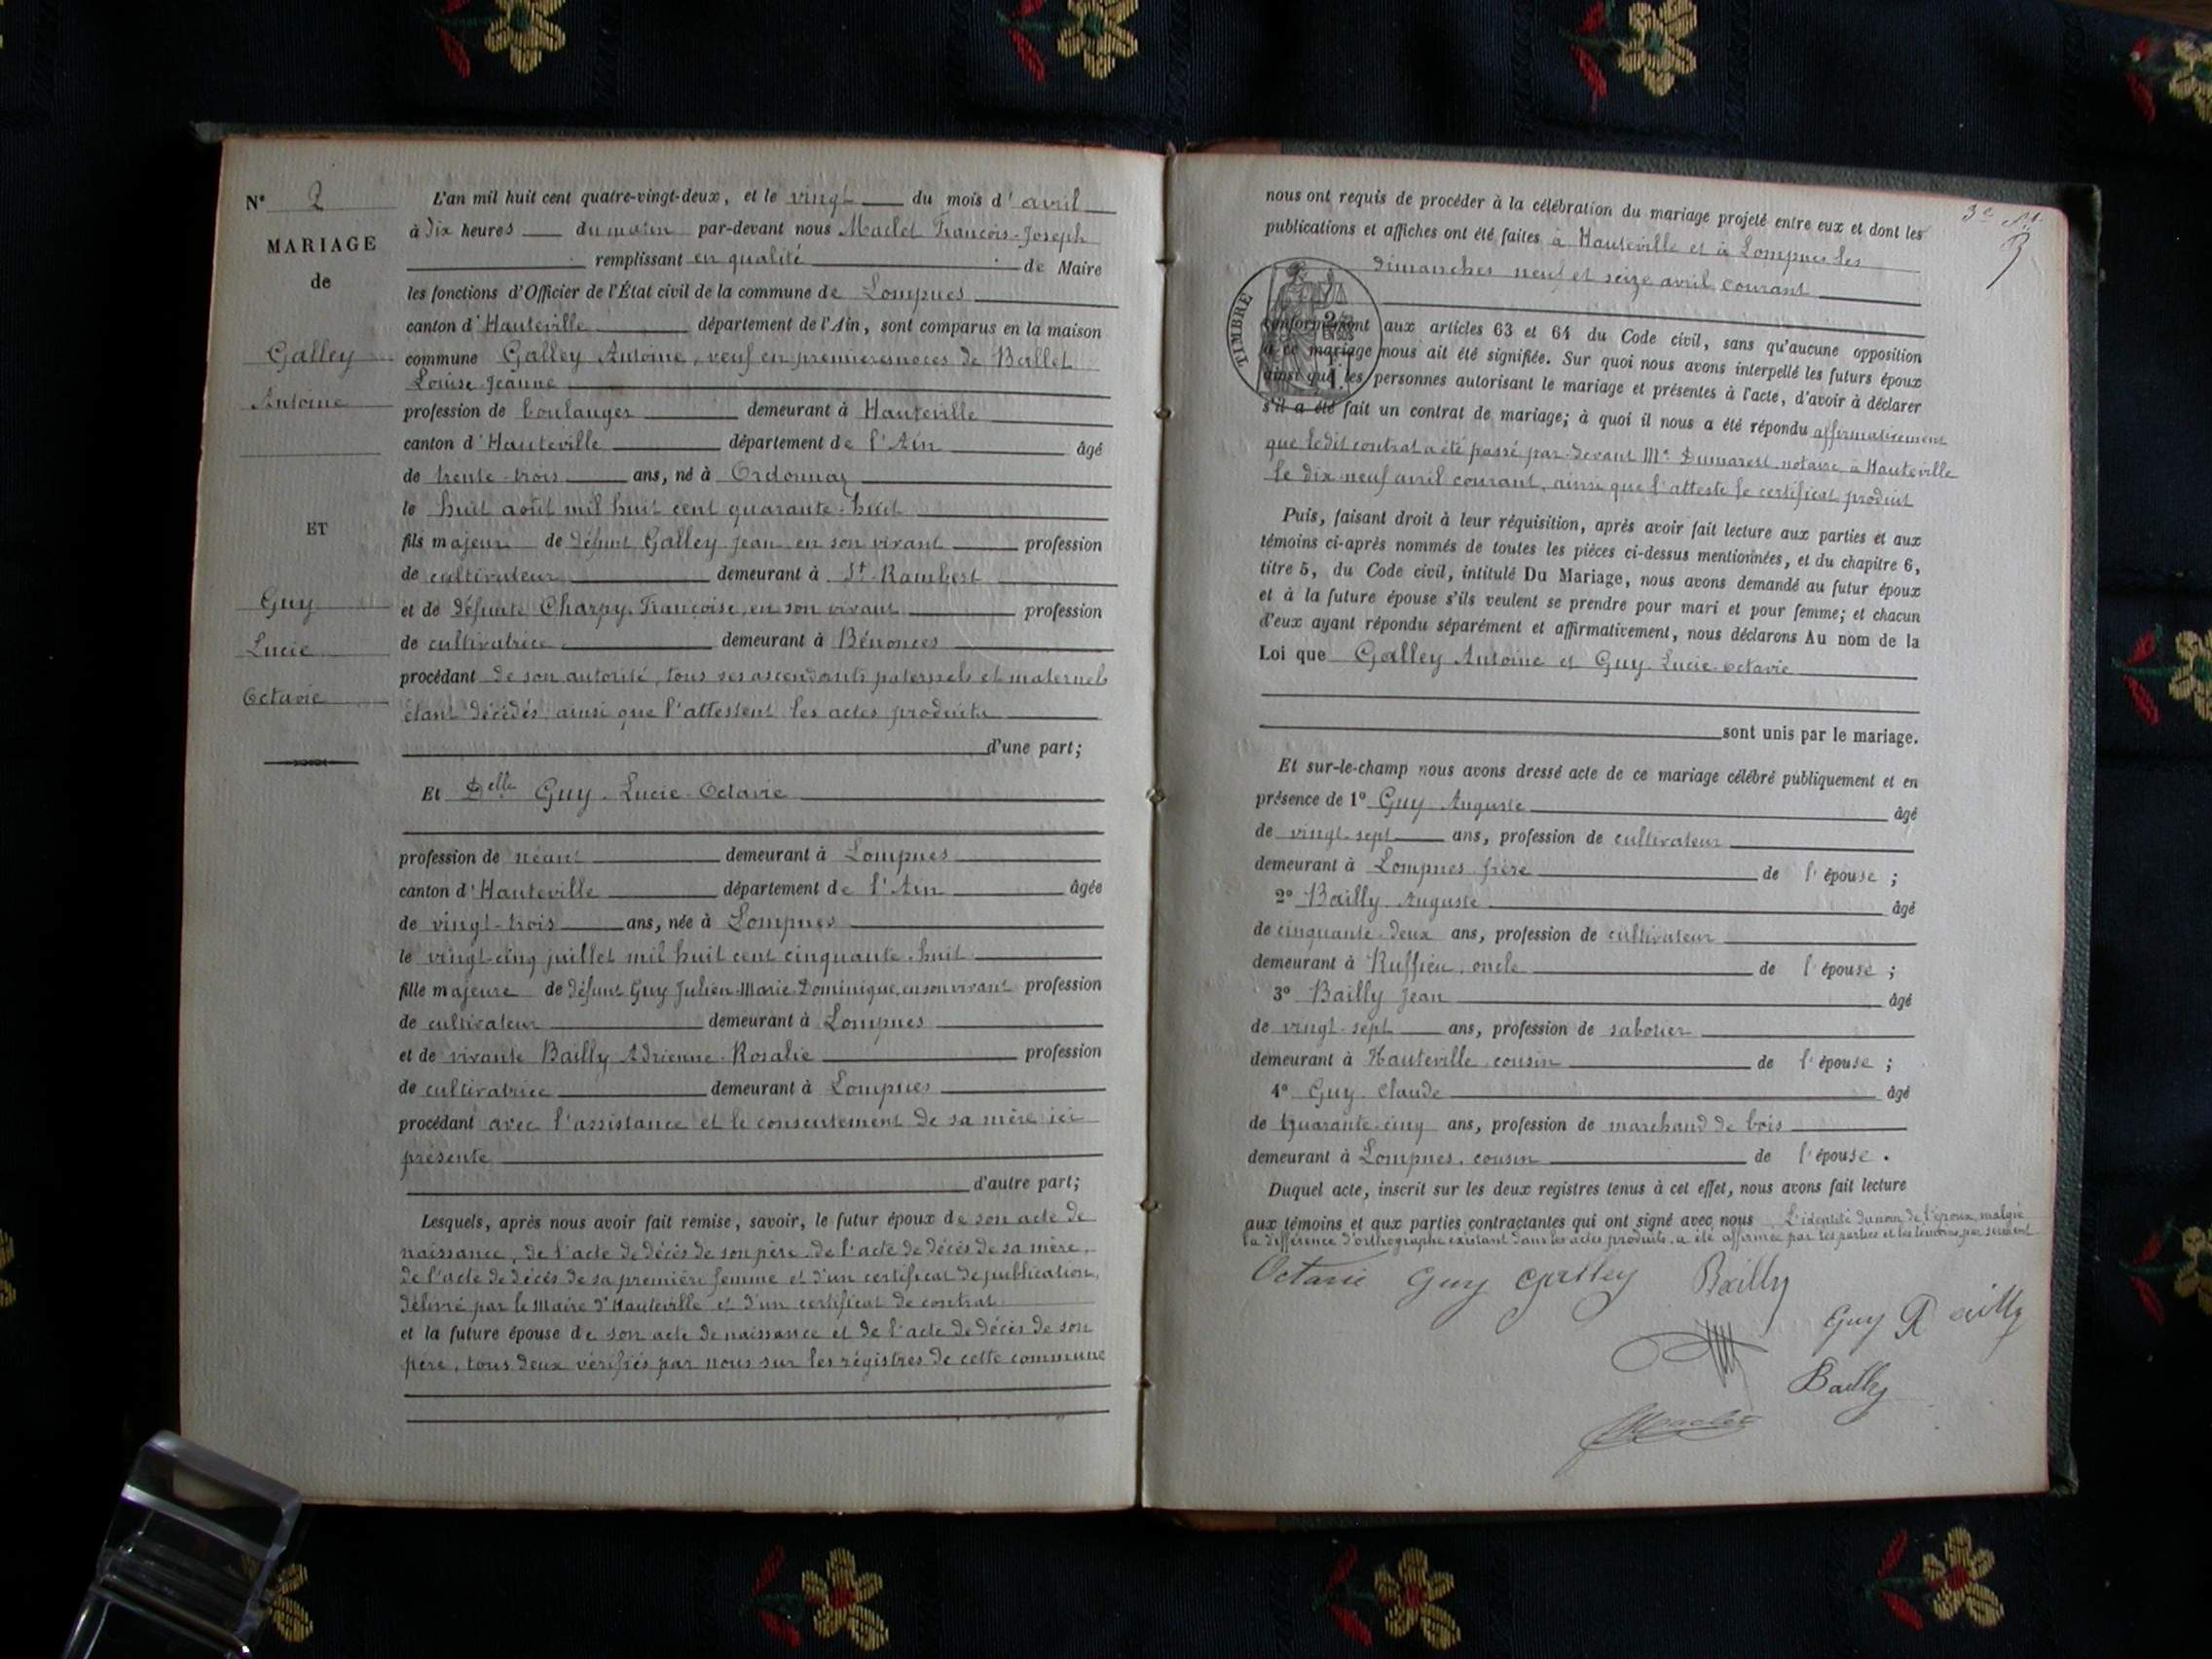 N° 2
MARIAGE
de
Galley
Antoine
ET
Guy
Lucie
Octavie
L'an mil huit cent quatre-vingt-deux, et le vingt du mois d'avril
à dix heures du matin par-devant nous Maclet François-Joseph
remplissant en qualité de Maire
les fonctions d'Officier de l'État civil de la commune de Lompnes
canton d'Hauteville département de l'Ain, sont comparus en la maison
commune Galley Antoine, veuf en premières noces de Ballet
Louise-Jeanne
profession de boulanger demeurant à Hauteville
canton d'Hauteville département de l'Ain âgé
de trente-trois ans, né à Ordonnaz
le huit août mil huit cent quarante-huit
fils majeur de défunt Galley Jean en son vivant profession
de cultivateur demeurant à St-Rambert
et de défunte Charpy Françoise, en son vivant profession
de cultivatrice demeurant à Bénonces
procédant de son autorité, tous ses ascendants paternels et maternels
étant décédés ainsi que l'attestent les actes produits
d'une part;
Et Delle Guy Lucie-Octavie
profession de néant demeurant à Lompnes
canton d'Hauteville département de l'Ain âgée
de vingt-trois ans, née à Lompnes
le vingt-cinq juillet mil huit cent cinquante-huit
fille majeure de défunt Guy Julien-Marie-Dominique, en son vivant profession
de cultivateur demeurant à Lompnes
et de vivante Bailly Adrienne-Rosalie profession
de cultivatrice demeurant à Lompnes
procédant avec l'assistance et le consentement de sa mère ici
présente
d'autre part;
Lesquels, après nous avoir fait remise, savoir, le futur époux de son acte de
naissance, de l'acte de décès de son père, de l'acte de décès de sa mère,
de l'acte de décès de sa première femme et d'un certificat de publication,
délivré par le Maire d'Hauteville et d'un certificat de contrat
et la future épouse de son acte de naissance et de l'acte de décès de son
père, tous deux vérifiés par nous sur les régistres de cette commune
nous ont requis de procéder à la célébration du mariage projeté entre eux et dont les
publications et affiches ont été faites à Hauteville et à Lompnes les
dimanches neuf et seize avril courant
TIMBRE
conformément aux articles 63 et 64 du Code civil, sans qu'aucune opposition
à ce mariage nous ait été signifiée. Sur quoi nous avons interpellé les futurs époux
ainsi que les personnes autorisant le mariage et présentes à l'acte, d'avoir à déclarer
s'il a été fait un contrat de mariage; à quoi il nous a été répondu affirmativement
que ledit contrat a été passé par-devant Me Dumarest notaire à Hauteville
le dix-neuf avril courant, ainsi que l'atteste le certificat produit
Puis, faisant droit à leur réquisition, après avoir fait lecture aux parties et aux
témoins ci-après nommés de toutes les pièces ci-dessus mentionnées, et du chapitre 6,
titre 5, du Code civil, intitulé Du Mariage, nous avons demandé au futur époux
et à la future épouse s'ils veulent se prendre pour mari et pour femme; et chacun
d'eux ayant répondu séparément et affirmativement, nous déclarons Au nom de la
Loi que Galley Antoine et Guy Lucie-Octavie
sont unis par le mariage.
Et sur-le-champ nous avons dressé acte de ce mariage célébré publiquement et en
présence de 1° Guy Auguste âgé
de vingt-sept ans, profession de cultivateur
demeurant à Lompnes frère de l'épouse ;
2° Bailly Auguste âgé
de cinquante-deux ans, profession de cultivateur
demeurant à Ruffieu, oncle de l'épouse ;
3° Bailly Jean âgé
de vingt-sept ans, profession de sabotier
demeurant à Hauteville cousin de l'épouse ;
4° Guy Claude âgé
de quarante-cinq ans, profession de marchand de bois
demeurant à Lompnes, cousin de l'épouse.
Duquel acte, inscrit sur les deux registres tenus à cet effet, nous avons fait lecture
aux témoins et aux parties contractantes qui ont signé avec nous L'identité du nom de l'époux, malgré
la différence d'orthographe existant dans les actes produits, a été affirmée par les parties et les témoins par serment
Octavie Guy Galley Bailly
Guy
Bailly
Maclet